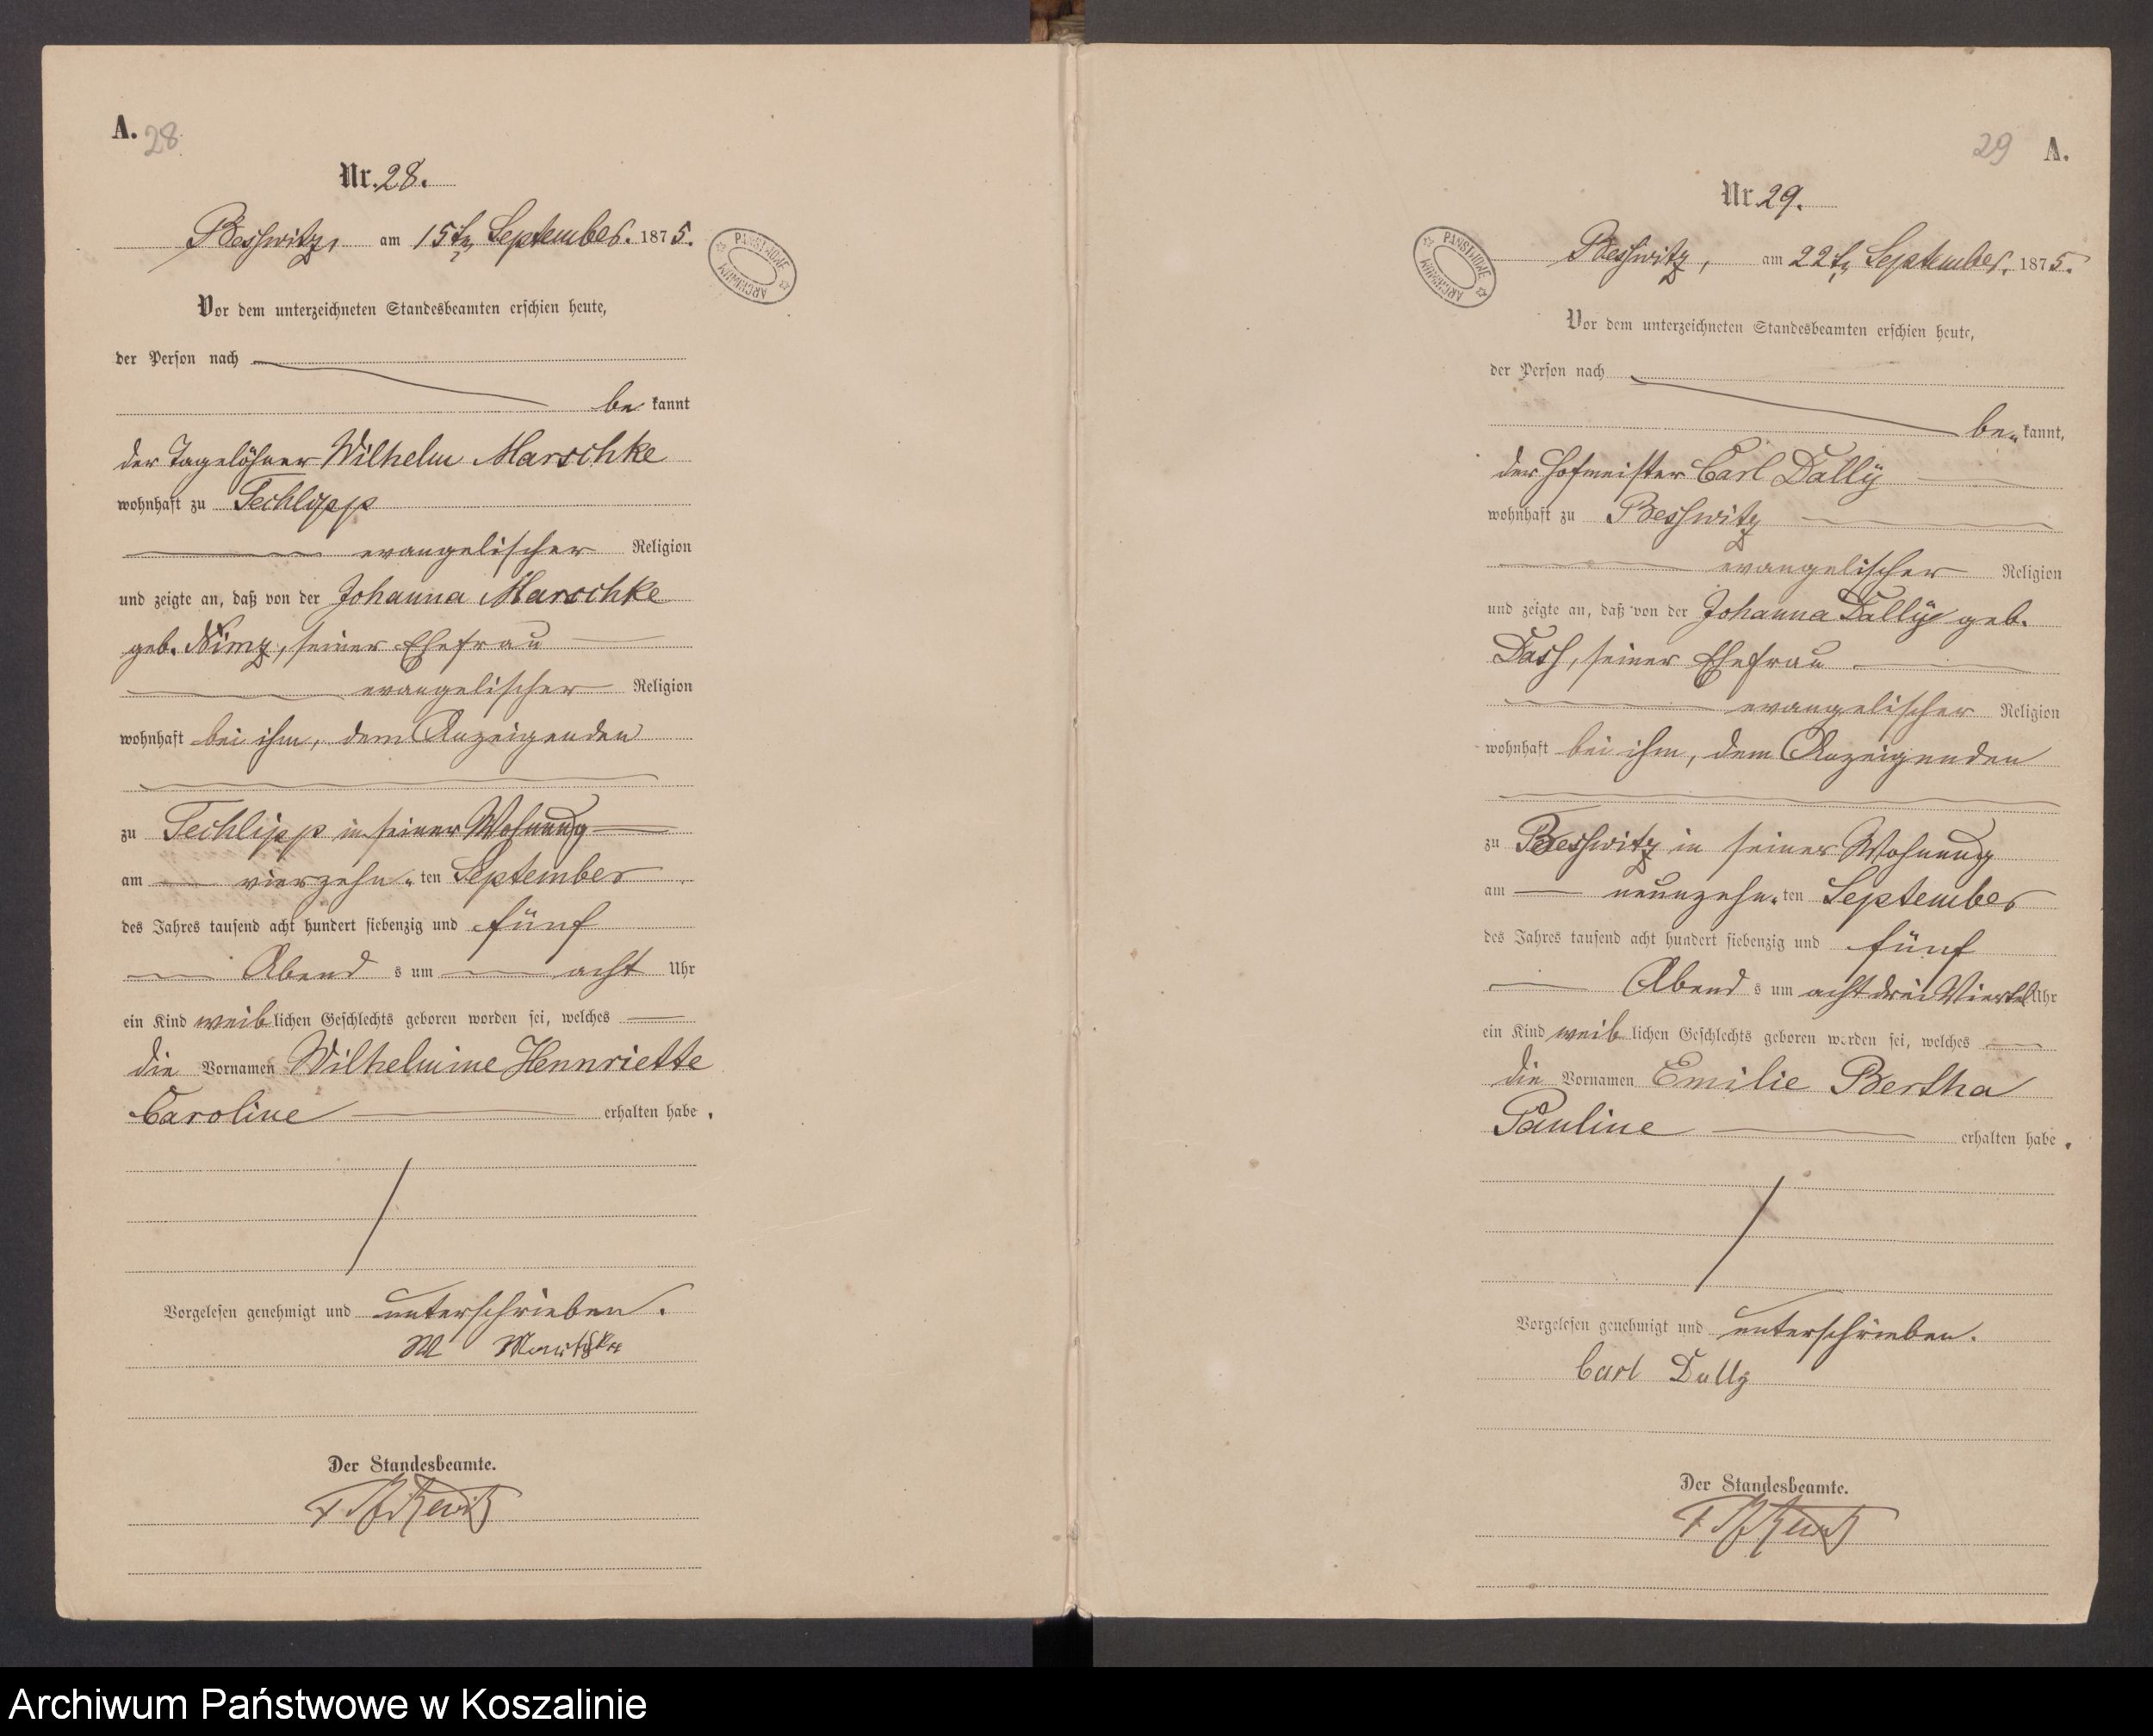 A. 28
Nr. 28.
Besswitz, am 15ten September. 1875.
PAŃSTWOWE ARCHIWUM
Vor dem unterzeichneten Standesbeamten erschien heute,
der Person nach
be kannt
der Tagelöhner Wilhelm Marschke
wohnhaft zu Techlipp
evangelischer Religion
und zeigte an, daß von der Johanna Marschke
geb. Nimz, seiner Ehefrau
evangelischer Religion
wohnhaft bei ihm, dem Anzeigenden
zu Techlipp in seiner Wohnung
am vierzehn-ten September
des Jahres tausend acht hundert siebenzig und fünf
Abend s um acht Uhr
ein Kind weiblichen Geschlechts geboren worden sei, welches
die Vornamen Wilhelmine Hennriette
Caroline erhalten habe.
Vorgelesen genehmigt und unterschrieben.
W Marschke
Der Standesbeamte.
29 A.
Nr. 29.
Besswitz, am 22ten September. 1875.
PAŃSTWOWE ARCHIWUM
Vor dem unterzeichneten Standesbeamten erschien heute,
der Person nach
be-kannt,
der Hofmeister Carl Dally
wohnhaft zu Besswitz
evangelischer Religion
und zeigte an, daß von der Johanna Dally geb.
Dass, seiner Ehefrau
evangelischer Religion
wohnhaft bei ihm, dem Anzeigenden
zu Besswitz in seiner Wohnung
am neunzehn-ten September
des Jahres tausend acht hundert siebenzig und fünf
Abend s um acht drei Viertel Uhr
ein Kind weib lichen Geschlechts geboren worden sei, welches
die Vornamen Emilie Bertha
Pauline erhalten habe.
Vorgelesen genehmigt und unterschrieben.
Carl Dally
Der Standesbeamte.
Archiwum Państwowe w Koszalinie